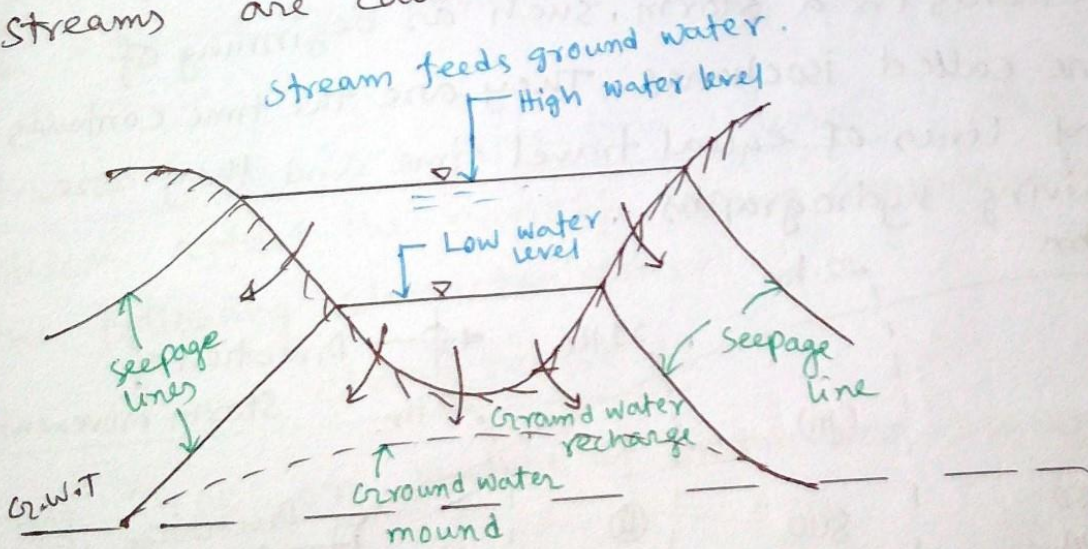 streams are
stream feeds ground water.
High water level
Low water
level
seepage
lines
Seepage
line
Ground water
recharge
Ground water
mound
G.W.T